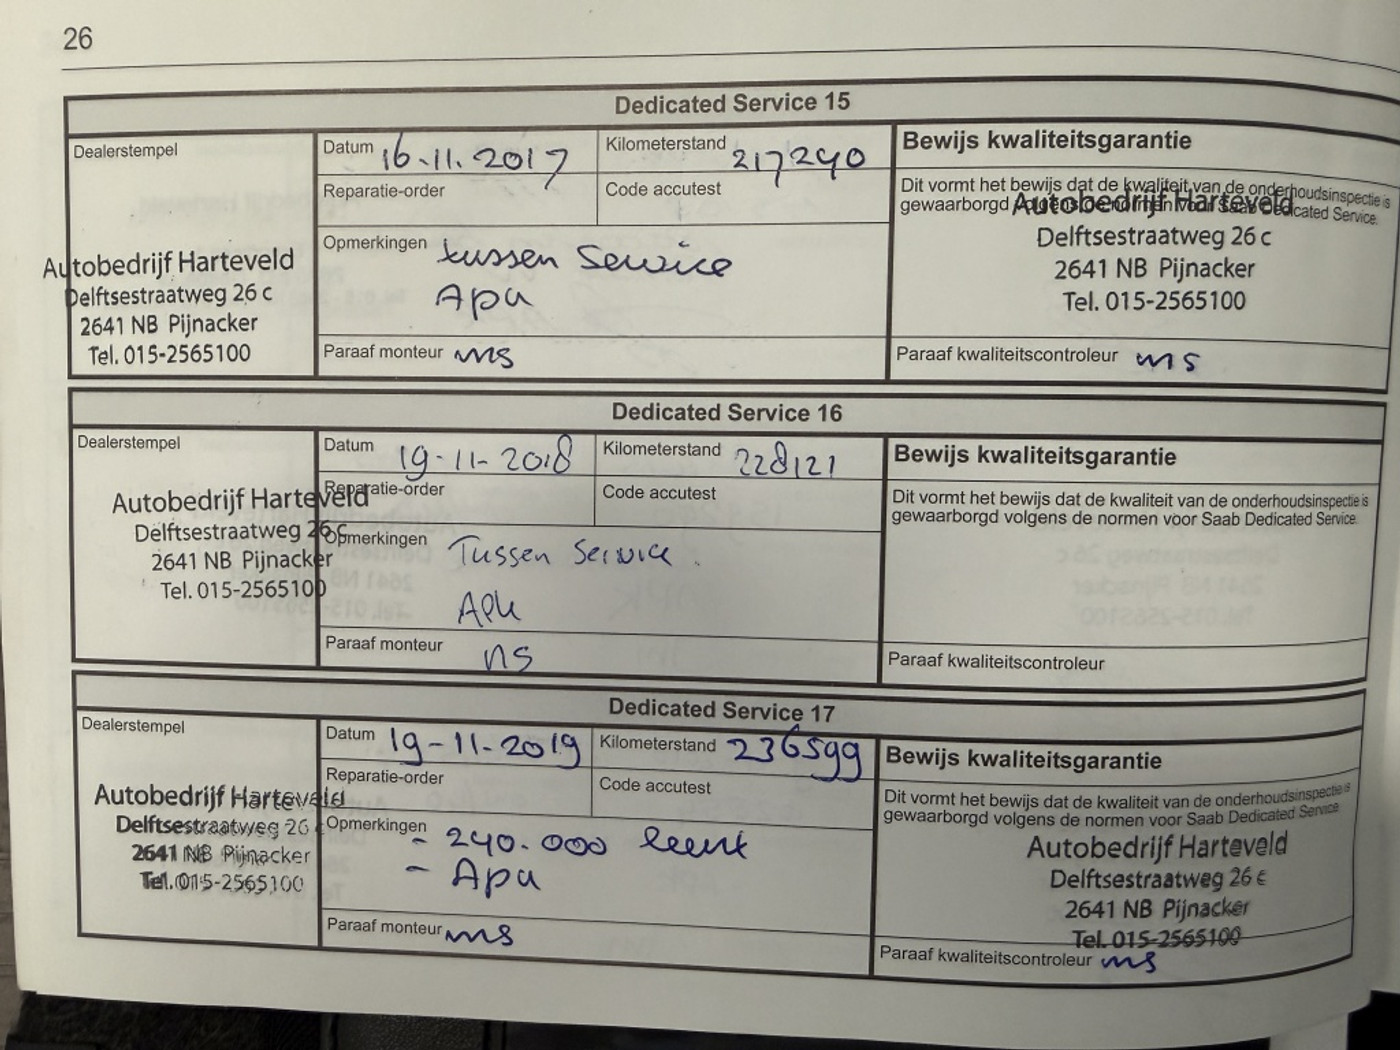 26
Dedicated Service 15
Dealerstempel
Autobedrijf Harteveld
Delftsestraatweg 26 c
2641 NB Pijnacker
Tel. 015-2565100
Datum 16-11-2017
Kilometerstand 217240
Reparatie-order
Code accutest
Opmerkingen tussen Service
Apk
Paraaf monteur ms
Bewijs kwaliteitsgarantie
Dit vormt het bewijs dat de kwaliteit van de onderhoudsinspectie is
gewaarborgd volgens de normen voor Saab Dedicated Service.
Autobedrijf Harteveld
Delftsestraatweg 26 c
2641 NB Pijnacker
Tel. 015-2565100
Paraaf kwaliteitscontroleur ms
Dedicated Service 16
Dealerstempel
Autobedrijf Harteveld
Delftsestraatweg 26 c
2641 NB Pijnacker
Tel. 015-2565100
Datum 19-11-2018
Kilometerstand 228121
Reparatie-order
Code accutest
Opmerkingen Tussen Service.
Apk
Paraaf monteur ms
Bewijs kwaliteitsgarantie
Dit vormt het bewijs dat de kwaliteit van de onderhoudsinspectie is
gewaarborgd volgens de normen voor Saab Dedicated Service.
Paraaf kwaliteitscontroleur
Dedicated Service 17
Dealerstempel
Autobedrijf Harteveld
Delftsestraatweg 26
2641 NB Pijnacker
Tel. 015-2565100
Datum 19-11-2019
Kilometerstand 236599
Reparatie-order
Code accutest
Opmerkingen - 240.000 beurt
- Apk
Paraaf monteur ms
Bewijs kwaliteitsgarantie
Dit vormt het bewijs dat de kwaliteit van de onderhoudsinspectie is
gewaarborgd volgens de normen voor Saab Dedicated Service.
Autobedrijf Harteveld
Delftsestraatweg 26 c
2641 NB Pijnacker
Tel. 015-2565100
Paraaf kwaliteitscontroleur ms